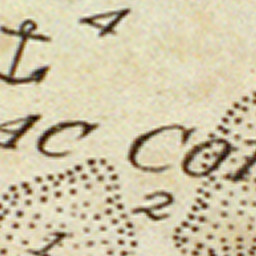 4
AC Col
2
1